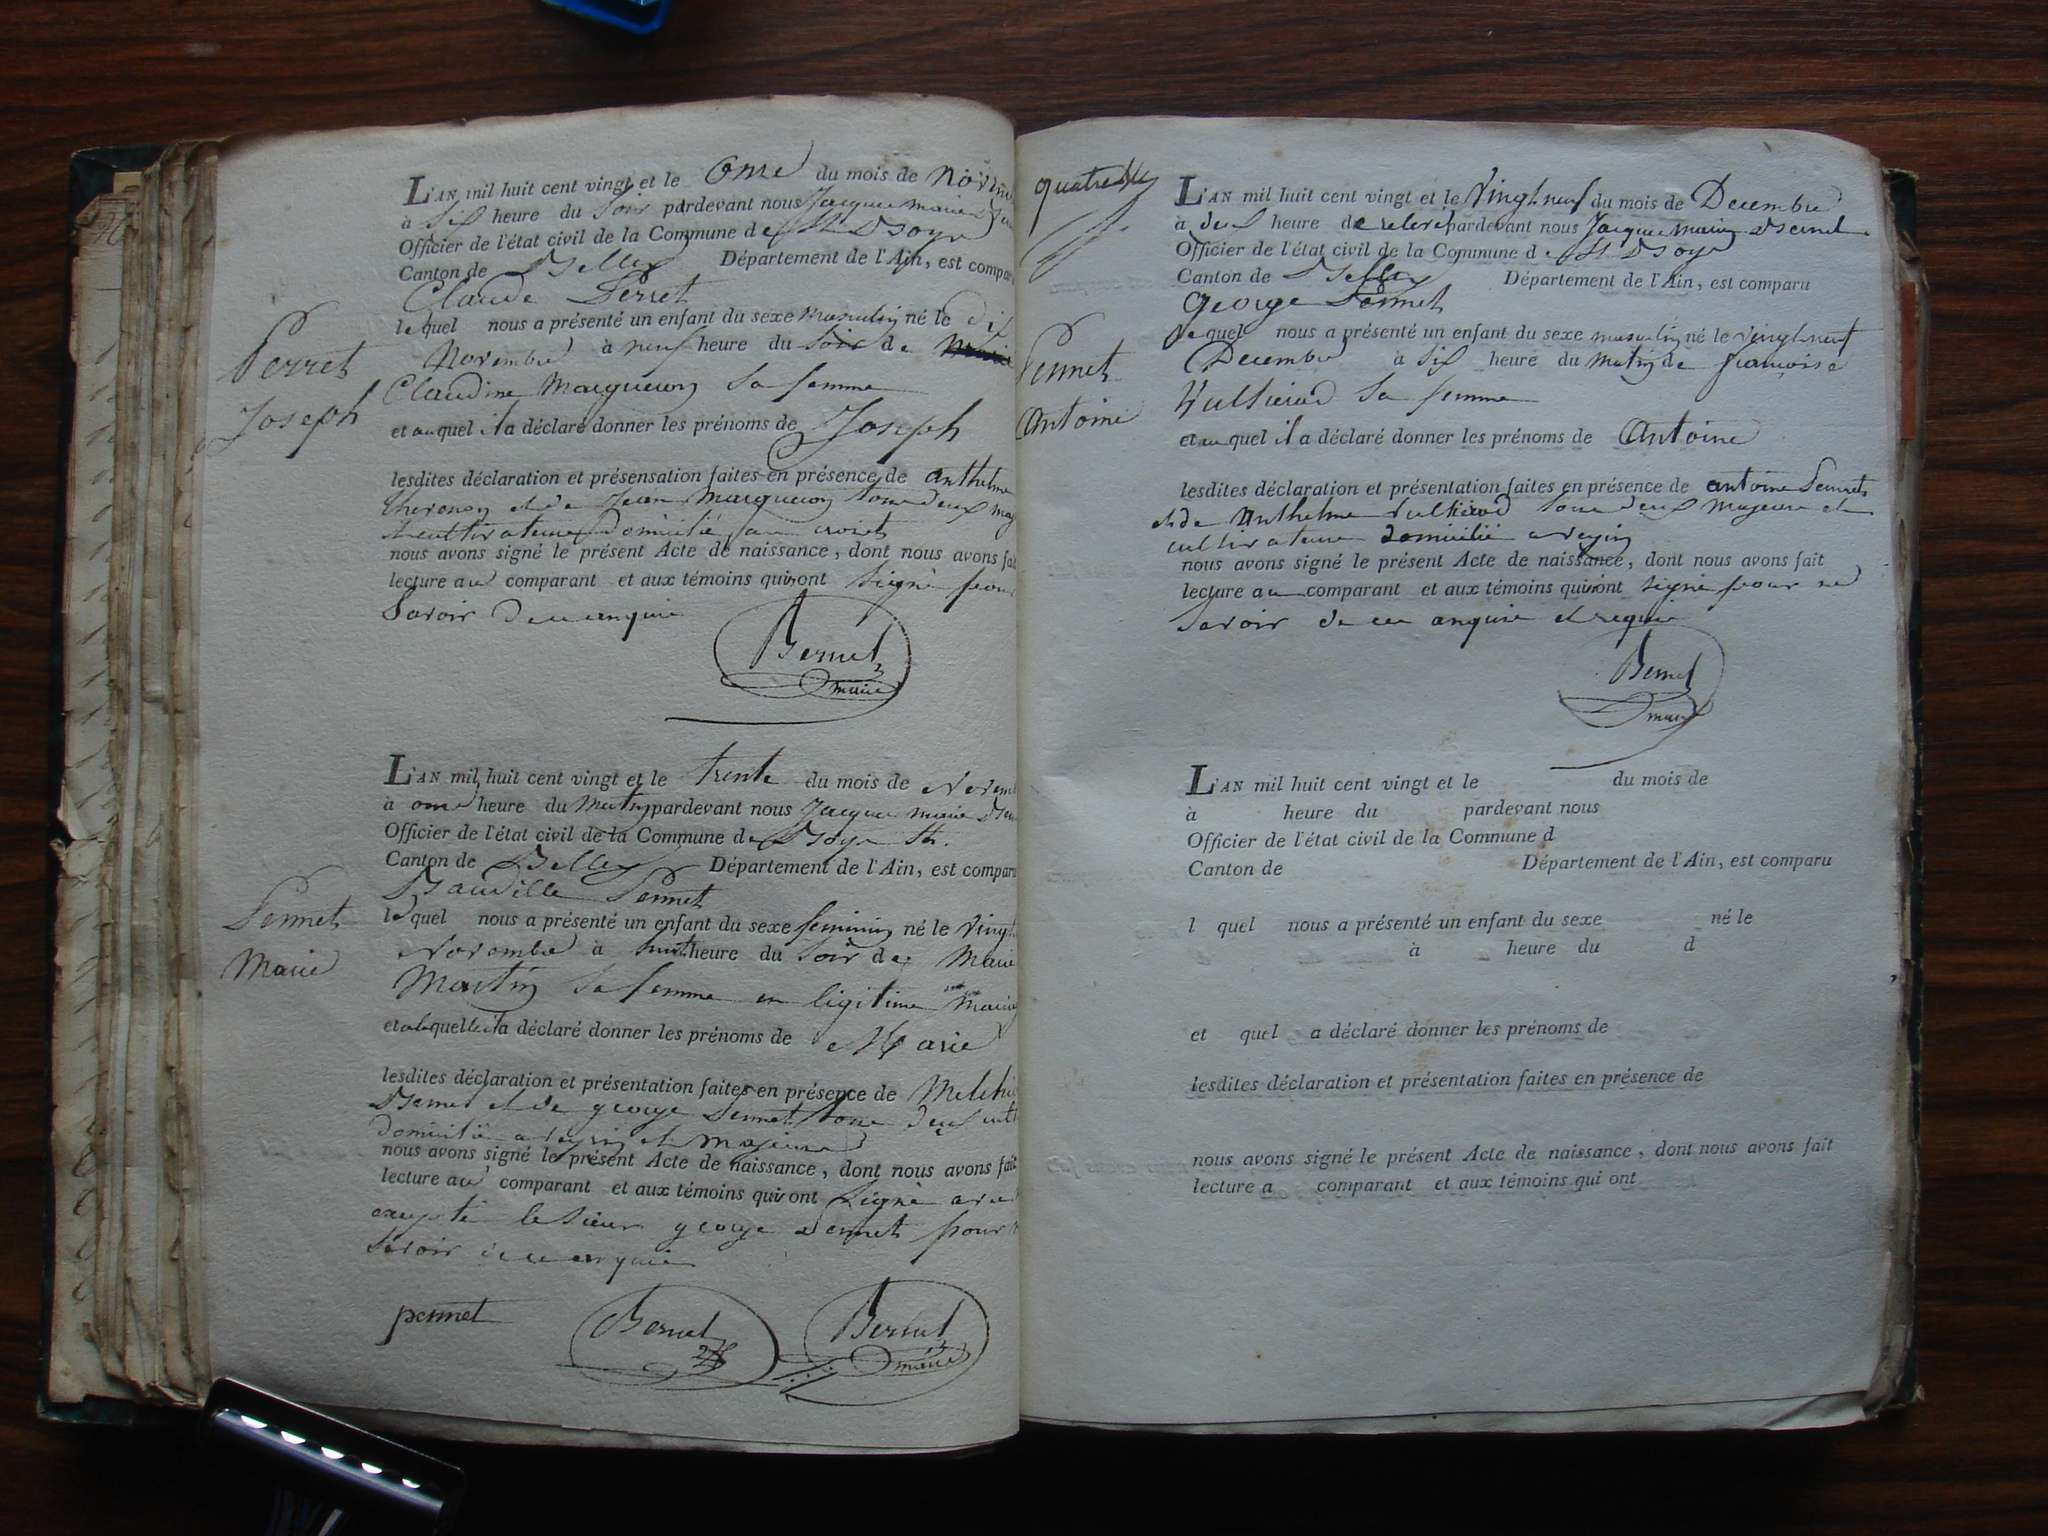 L'AN mil huit cent vingt et le onze du mois de
à six heure du soir pardevant nous Jacque marie
Officier de l'état civil de la Commune de St
Canton de Belley Département de l'Ain, est compar
Claude Perret
lequel nous a présenté un enfant du sexe masculin né le dix
Novembre à neuf heure du soir de
Perret
Claudine Marqueron sa femme
Joseph
et auquel il a déclaré donner les prénoms de Joseph
lesdites déclaration et présensation faites en présence de anthelme
et de Jean Marqueron tous deux
domicilié au
nous avons signé le présent Acte de naissance, dont nous avons fait
lecture au comparant et aux témoins qui ont signé pour
savoir de ce enquis
Bernet
maire
L'AN mil huit cent vingt et le trente du mois de Novem
à onze heure du matin pardevant nous Jacque marie
Officier de l'état civil de la Commune de St.
Canton de Belley Département de l'Ain, est compar
Pennet
lequel nous a présenté un enfant du sexe feminin né le vingt
Pennet
Novembre à huit heure du soir de Marie
Marie
Martin sa femme en légitime
et a laquelle il a déclaré donner les prénoms de Marie
lesdites déclaration et présentation faites en présence de
Bernet et de george Pennet tous deux
domicilié a et majeure
nous avons signé le présent Acte de naissance, dont nous avons fait
lecture au comparant et aux témoins qui ont signé avec
excepté le sieur george Pennet pour
savoir de ce enquis
pennet Bernet Bernet
maire
L'AN mil huit cent vingt et le vingt neuf du mois de Decembre
à deux heure de relevé pardevant nous Jacque marie Bernet
Officier de l'état civil de la Commune de St
Canton de Belley Département de l'Ain, est comparu
george Pennet
le quel nous a présenté un enfant du sexe masculin né le vingt neuf
Pennet
Decembre à six heure du matin de françoise
Antoine
Vullierod sa femme
et au quel il a déclaré donner les prénoms de Antoine
lesdites déclaration et présentation faites en présence de antoine Pennet
et de Anthelme Vullierod tous deux majeure et
cultivateur domicilié a
nous avons signé le présent Acte de naissance, dont nous avons fait
lecture au comparant et aux témoins qui ont signé pour ne
savoir de ce enquis et requis
Bernet
maire
L'AN mil huit cent vingt et le du mois de
à heure du pardevant nous
Officier de l'état civil de la Commune d
Canton de Département de l'Ain, est comparu
l quel nous a présenté un enfant du sexe né le
à heure du d
et quel a déclaré donner les prénoms de
lesdites déclaration et présentation faites en présence de
nous avons signé le présent Acte de naissance, dont nous avons fait
lecture a comparant et aux témoins qui ont